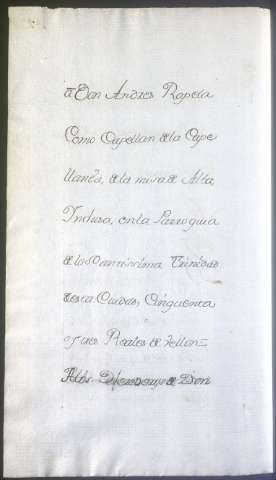 a Don Andres Rapela
Como Capellan de la Cape
llania, de la misa de Alba
Inclusa, en la Parroquia
de la Santissima Trinidad
desta Ciudad, Cinquenta
y seis Reales de vellon
A los de Don